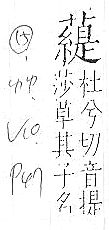 杜兮切音提
莎草其子名
⑮
V10.
P47